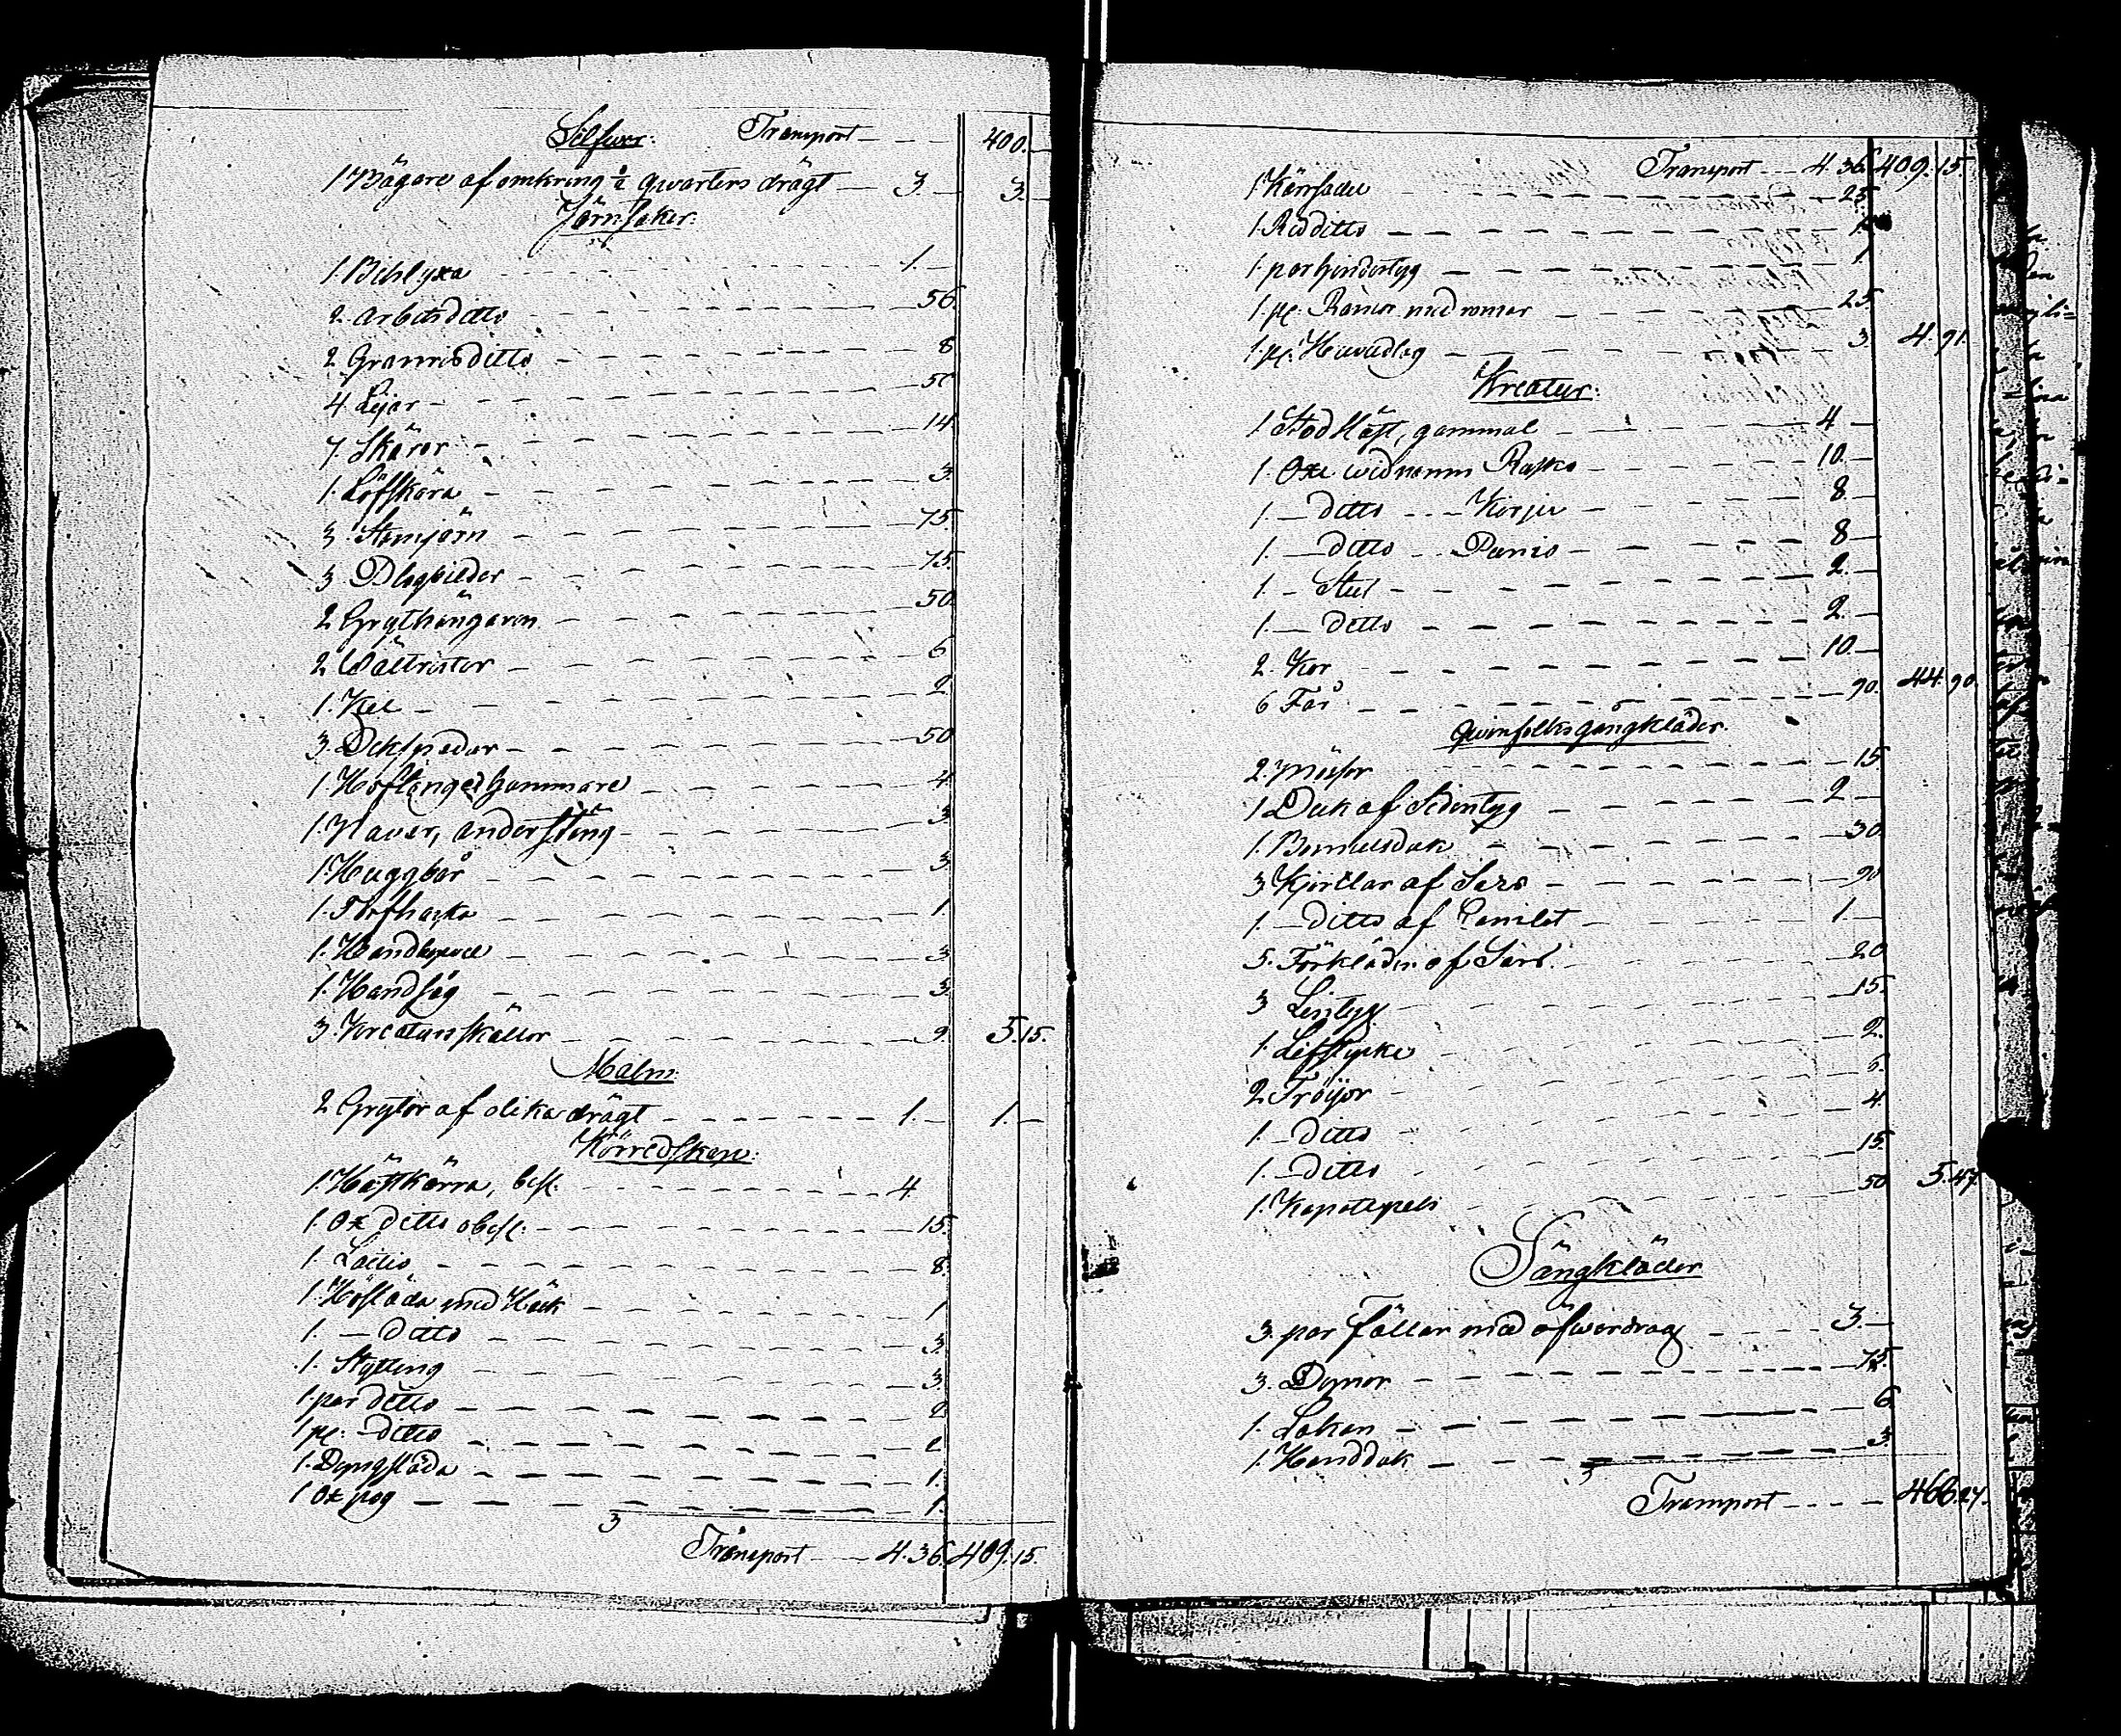 Silfwer: Transport 400.
1 Bägare af omkring ½ qwarters drägt 3. 3.
Jörnsaker.
1. Bihlyxa 1.
2. Arbetsditto 56
2 Grannisditto 8
4. Lijar 50
7. Skäror 14
1. Löfskära 3.
3. Stemjärn 75.
3 Plogbilder 75.
2 Grythängaren 50.
2 Wältristar 6
1. Kil 2
3. 50
1. Hofstånge hammare 4
1. Navar, andersting 3
1. Huggbår 3
1. 1.
1. 3
1. Handsåg 3.
3. Kreaturs skällor 9. 5.15.
Malm:
2 Grytor af olika drägt 1. 1.
Körredskap:
1. Hästkärra, besl. 4.
1. Ox ditto obesl. 15.
1. 8.
1. Hösläda med Häck 1
1. ditto 3.
1. Stytting 3.
1. par ditto 2.
1 p. ditto 2
1. Dyngsläda 1.
1 Ox pog 1.
3
Transport 4.36. 409.15.
Transport 4.36. 409.15.
1 Kärrsadel 25.
1. Rid ditto
1. par hindertyg 1
1. p. Ramor med remar 25
1. p. Huvudlag 3. 4.91.
Kreatur:
1 Stod Häst, gammal 4
1. Oxe widnamn Rasko 10.
1. ditto Korju 8
1. ditto Punio 8
1. Stut 2.
1. ditto 2.
2. Kor 10.
6 Får 90. 44.90.
Qwinfolks gångkläder.
2. Missor 15.
1 Duk af Sidentyg 2
1. Bomulsduk 30.
3 Kjortlar af Sars 90
1. ditto af Camlot 1
5. Förkläden af Sars. 20
3 Lintyg 15.
1. Lifstycke 2.
2 Tröijor 6.
1. ditto 4.
1. ditto 15.
1. 50 5.47.
Sängkläder
3. par Fällar med öfwerdrag 3.
3. Dynor 75.
1. Lakan 6
1. Handduk 3.
3
Transport 466.27.